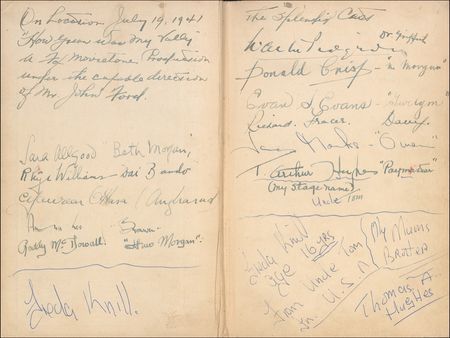 On Location July 19, 1941
"How Green was My Valley"
a Fox Movietone Production
under the capable direction
of Mr John Ford.
Sara Allgood "Beth Morgan",
Rhys Williams Dai Bando
Maureen O'Hara (Angharad
Anna Lee Bronwen
Roddy McDowall. "Huw Morgan".
Freda Knill.
The Splendid Cast
Walter Pidgeon Dr Gruffydd
Donald Crisp - "Mr Morgan"
Evan S. Evans - "Gwilym"
Richard Fraser Davy.
James Monks - "Owen"
T. Arthur Hughes "Paymaster"
(my stage name)
Uncle Tom
Freda Knill
age 16 yrs
from Uncle Tom
in U.S.A
(My Mums
Brother
Thomas A.
Hughes